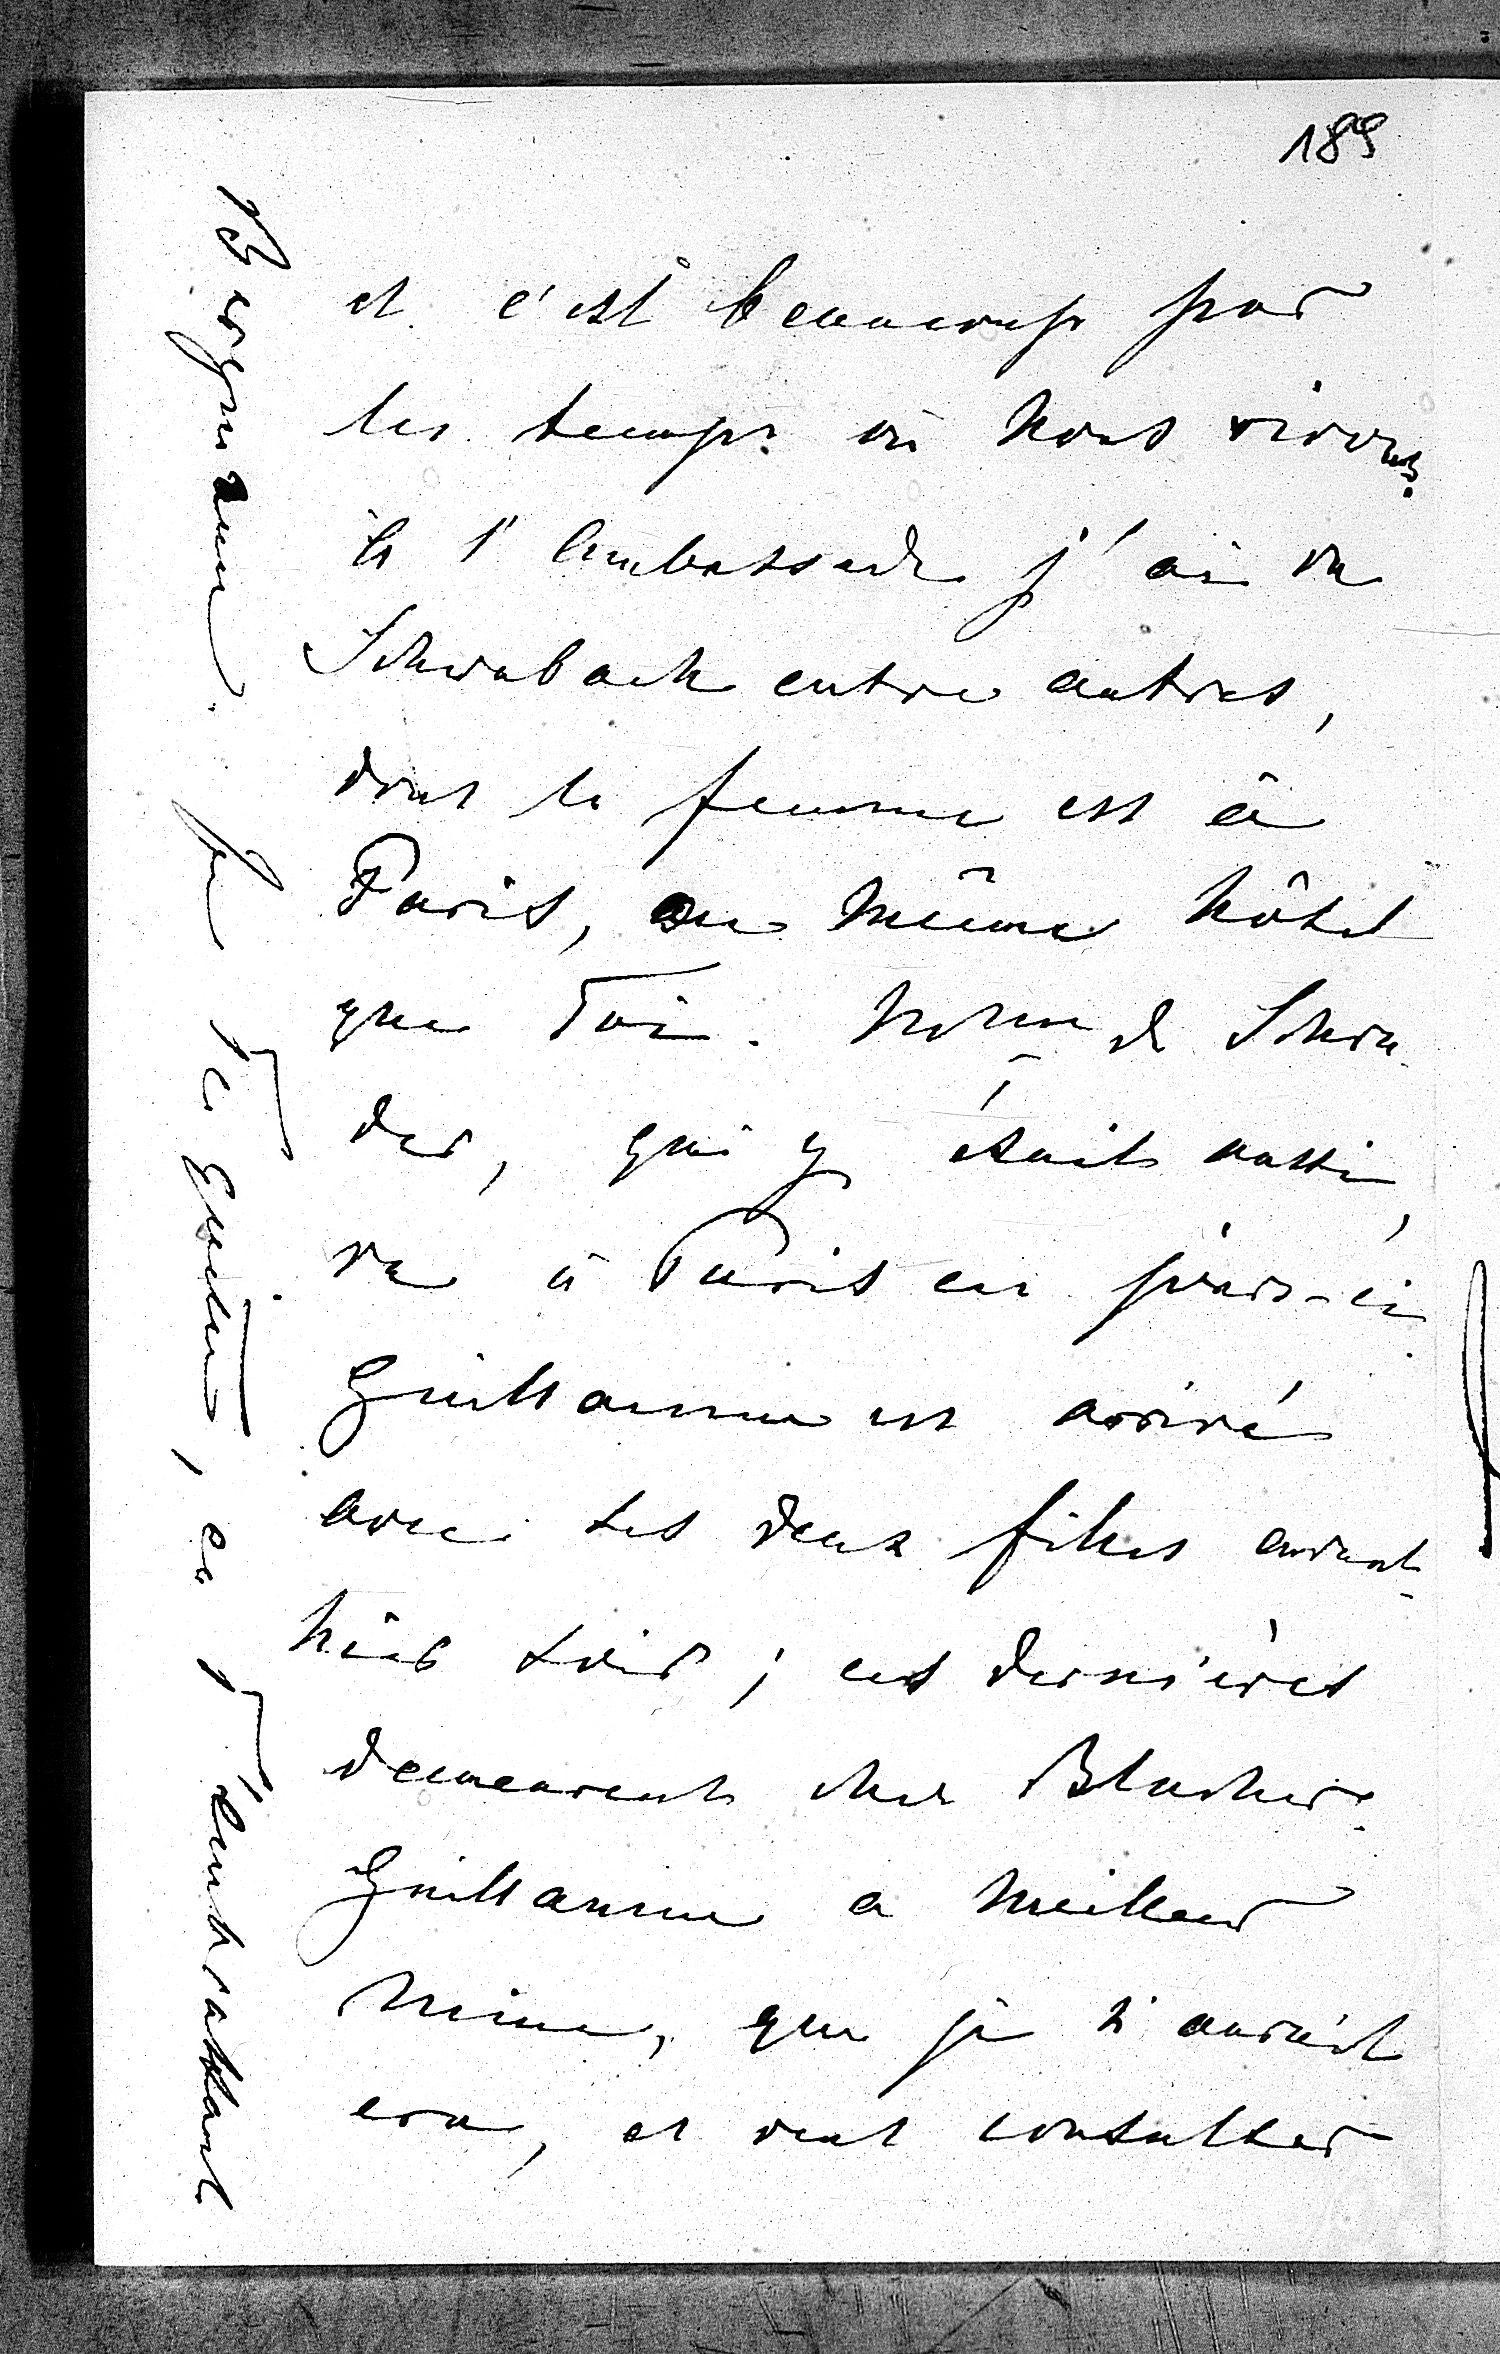 189
et c'est beaucoup par
les temps où nous vivons.
à l'Ambassade j'ai vu
Schwabach entre autres,
dont la femme est à
Paris, au même hôtel
que Toi. de Schra
der, qui y était aussi,
va à Paris ces jours-ci.
Guillaume est arrivé
avec ses deux filles avant
hier soir; ces dernières
demeurent chez Blücher.
Guillaume a meilleur
mine, que je n'aurais
cru, et veut consulter
Bergmann. Je Te quitte, en T'embrassant